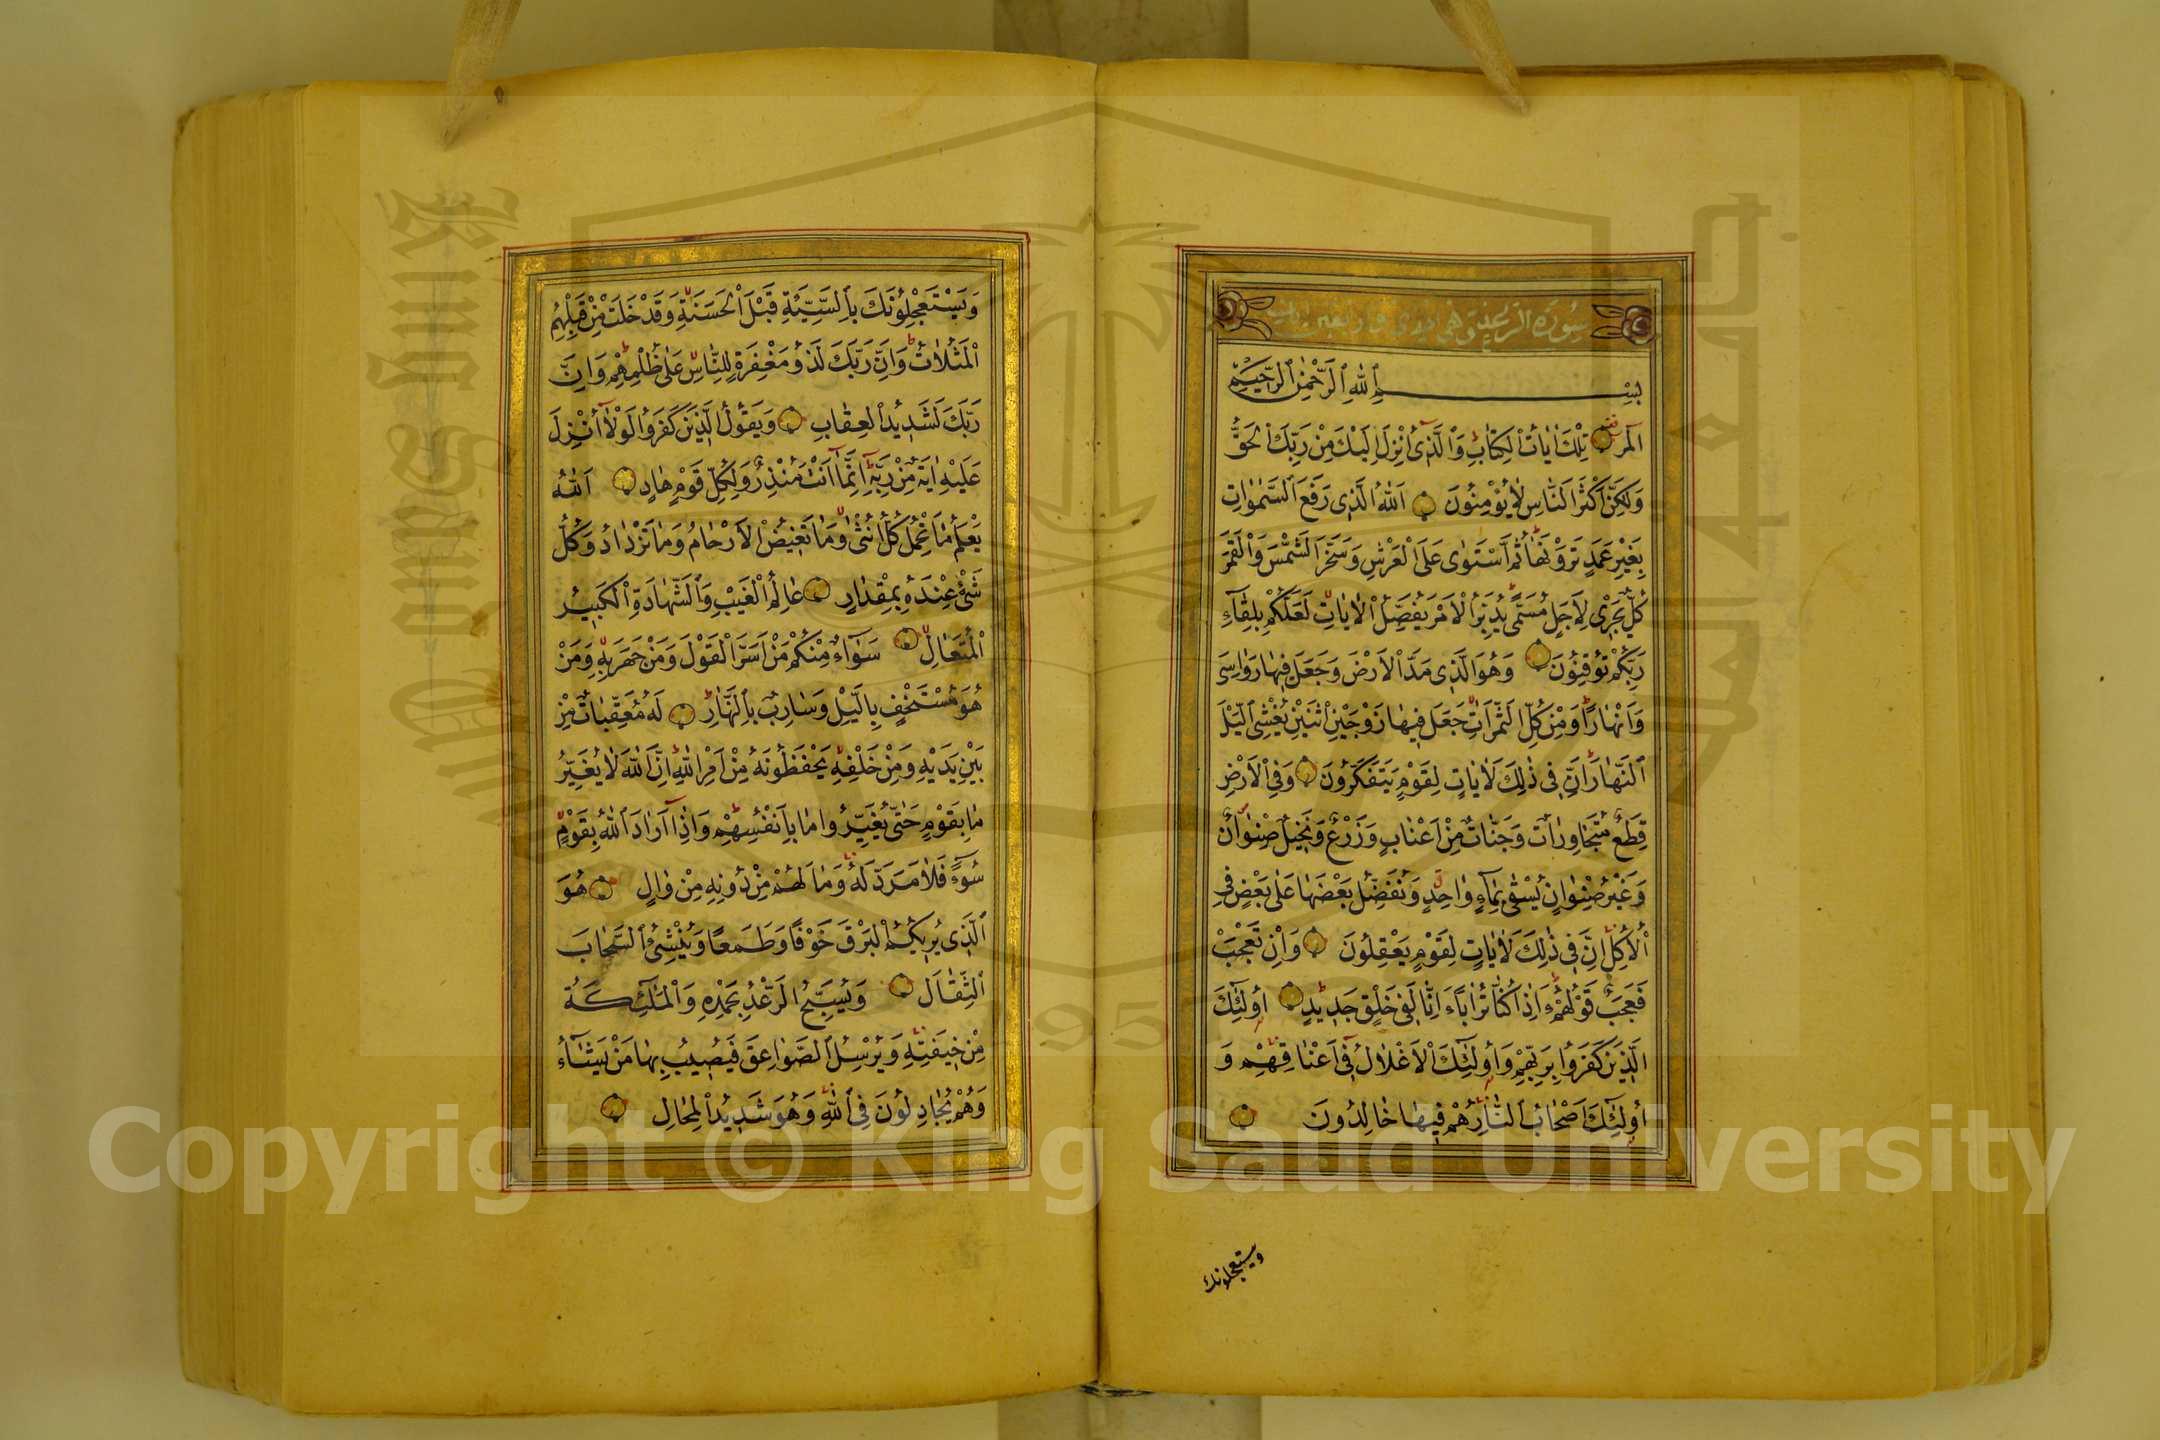 سورة الرعد وهي
بسم الله الرحمن الرحيم
المر تلك ايات الكتاب والذي انزل اليك من ربك الحق
ولكن اكثر الناس لا يؤمنون الله الذي رفع السموات
بغير عمد ترونها ثم استوى على العرش وسخر الشمس والقمر
كل يجري لاجل مسمى يدبر الامر يفصل الايات لعلكم بلقاء
ربكم توقنون وهو الذي مد الارض وجعل فيها رواسي
وانهارا ومن كل الثمرات جعل فيها زوجين اثنين يغشي الليل
النهار ان في ذلك لايات لقوم يتفكرون وفي الارض
قطع متجاورات وجنات من اعناب وزرع ونخيل صنوان
وغير صنوان يسقى بماء واحد ونفضل بعضها على بعض في
الاكل ان في ذلك لايات لقوم يعقلون وان تعجب
فعجب قولهم ءاذا كنا ترابا ءانا لفي خلق جديد اولئك
الذين كفروا بربهم واولئك الاغلال في اعناقهم و
اولئك اصحاب النار هم فيها خالدون
ويستعجلونك
ويستعجلونك بالسيئة قبل الحسنة وقد خلت من قبلهم
المثلات وان ربك لذو مغفرة للناس على ظلمهم وان
ربك لشديد العقاب ويقول الذين كفروا لولا انزل
عليه اية من ربه انما انت منذر ولكل قوم هاد الله
يعلم ما تحمل كل انثى وما تغيض الارحام وما تزداد وكل
شئ عنده بمقدار عالم الغيب والشهادة الكبير
المتعال سواء منكم من اسر القول ومن جهر به ومن
هو مستخف باليل وسارب بالنهار له معقبات من
بين يديه ومن خلفه يحفظونه من امر الله ان الله لا يغير
ما بقوم حتى يغيروا ما بانفسهم واذا اراد الله بقوم
سوءا فلا مرد له وما لهم من دونه من وال هو
الذي يريكم البرق خوفا وطمعا وينشئ السحاب
الثقال ويسبح الرعد بحمده والملئكة
من خيفته ويرسل الصواعق فيصيب بها من يشاء
وهم يجادلون في الله وهو شديد المحال
King Saud University
1957
Copyright © King Saud University